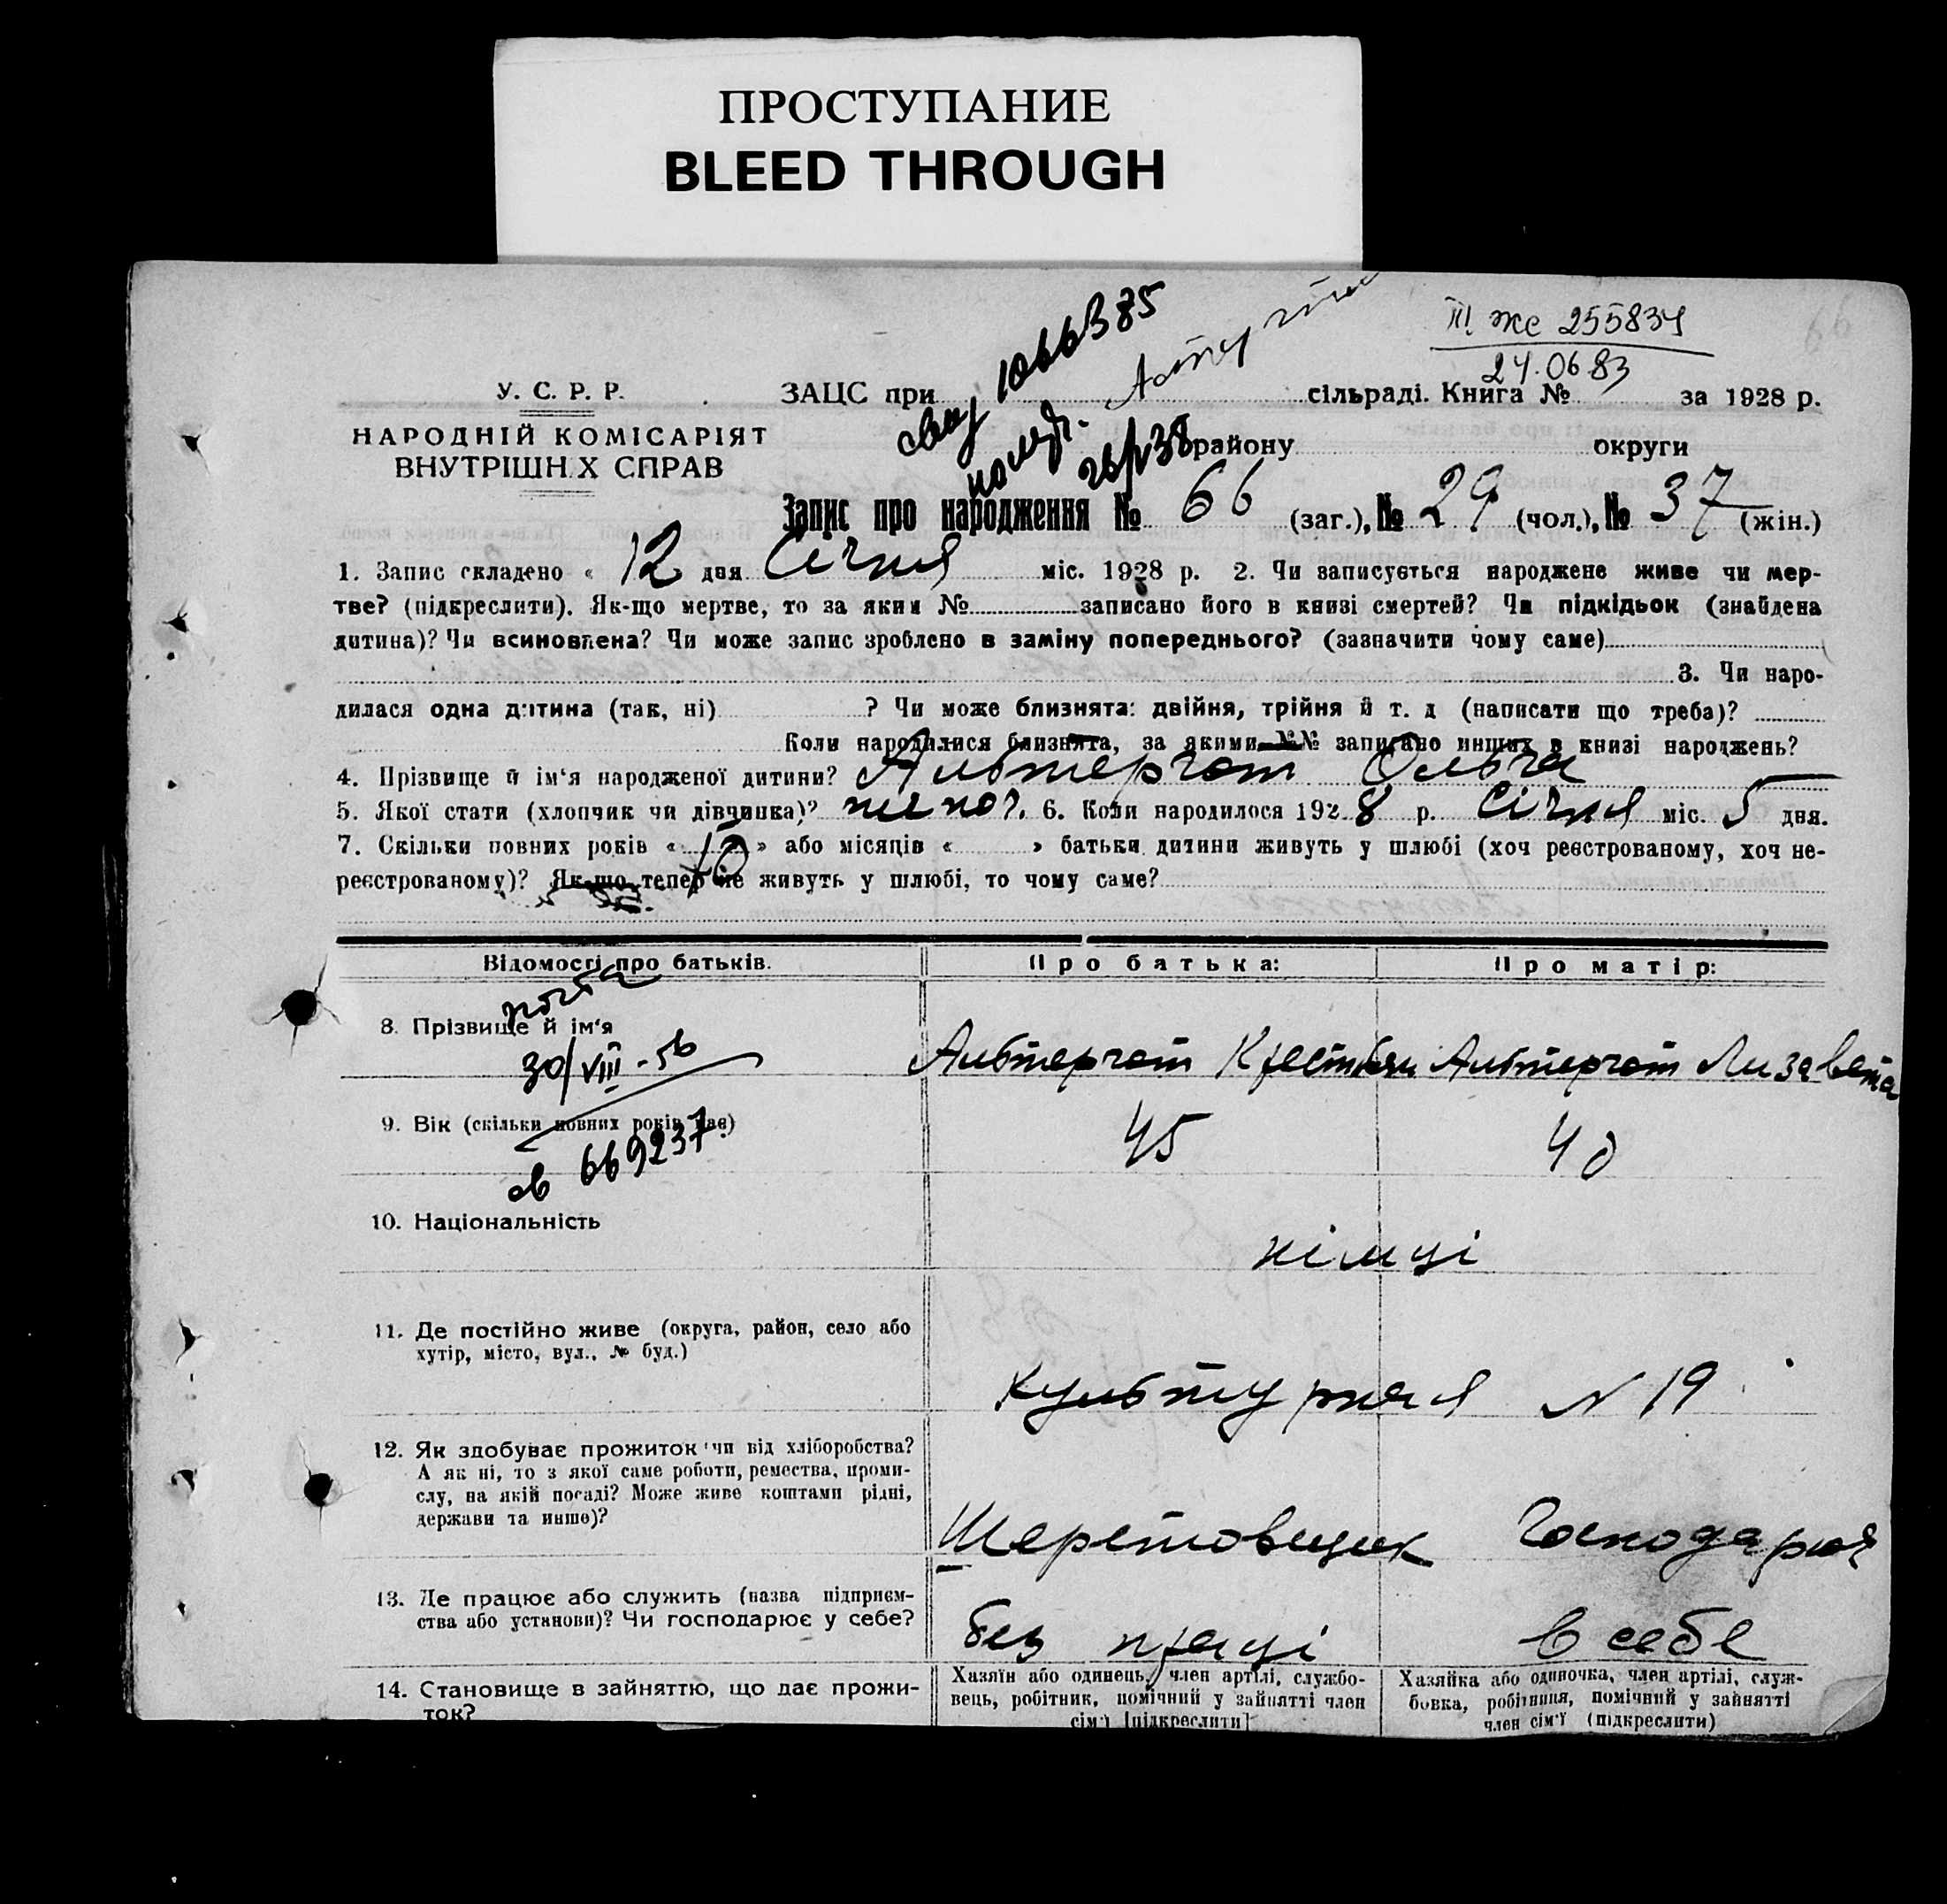 ПРОСТУПАНИЕ
BLEED THROUGH
III ЖС 255834
24.06.83
66
1066385
У. С. Р. Р.
ЗАЦС при сільраді. Книга № за 1928 р.
НАРОДНІЙ КОМІСАРІЯТ
ВНУТРІШН.Х СПРАВ
району округи
Запис про народження № 66 (заг.), № 29 (чол.), № 37 (жін.)
1. Запис складено « 12 дня Січня міс. 1928 р. 2. Чи записується народжене живе чи мер-
тве? (підкреслити). Як-що мертве, то за яким № записано його в книзі смертей? Чи підкідьок (знайдена
дитина)? Чи всиновлена? Чи може запис зроблено в заміну попереднього? (зазначити чому саме)
3. Чи наро-
дилася одна дитина (так, ні) ? Чи може близнята: двійня, трійня й т. д (написати що треба)?
Коли народилися близнята, за якими №№ записано инших в книзі народжень?
4. Прізвище й ім'я народженої дитини? Альтергот Ольга
5. Якої стати (хлопчик чи дівчинка)? 6. Коли народилося 1928 р. Січня міс. 5 дня.
7. Скільки повних років « 10 » або місяців « » батьки дитини живуть у шлюбі (хоч реєстрованому, хоч не-
реєстрованому)? Як-що тепер не живуть у шлюбі, то чому саме?
Відомості про батьків. Про батька: Про матір:
8. Прізвище й ім'я Альтергот Крестьян Альтергот Лизавета
30/VIII-56
9. Вік (скільки повних років має) 45 40
св 669237.
10. Національність німці
11. Де постійно живе (округа, район, село або
хутір, місто, вул., № буд.)
Культурная N 19
12. Як здобуває прожиток чи від хліборобства?
А як ні, то з якої саме роботи, ремества, проми-
слу, на якій посаді? Може живе коштами рідні,
держави та инше)?
Шерстовщик Господарює
13. Де працює або служить (назва підприєм-
ства або установи)? Чи господарює у себе?
без праці в себе
14. Становище в зайняттю, що дає прожи-
ток?
Хазяїн або одинець, член артілі, службо-
вець, робітник, помічний у зайнятті член
сім'ї [підкреслити]
Хазяйка або одиночка, член артілі, служ-
бовка, робітниця, помічний у зайнятті
член сім'ї (підкреслити)